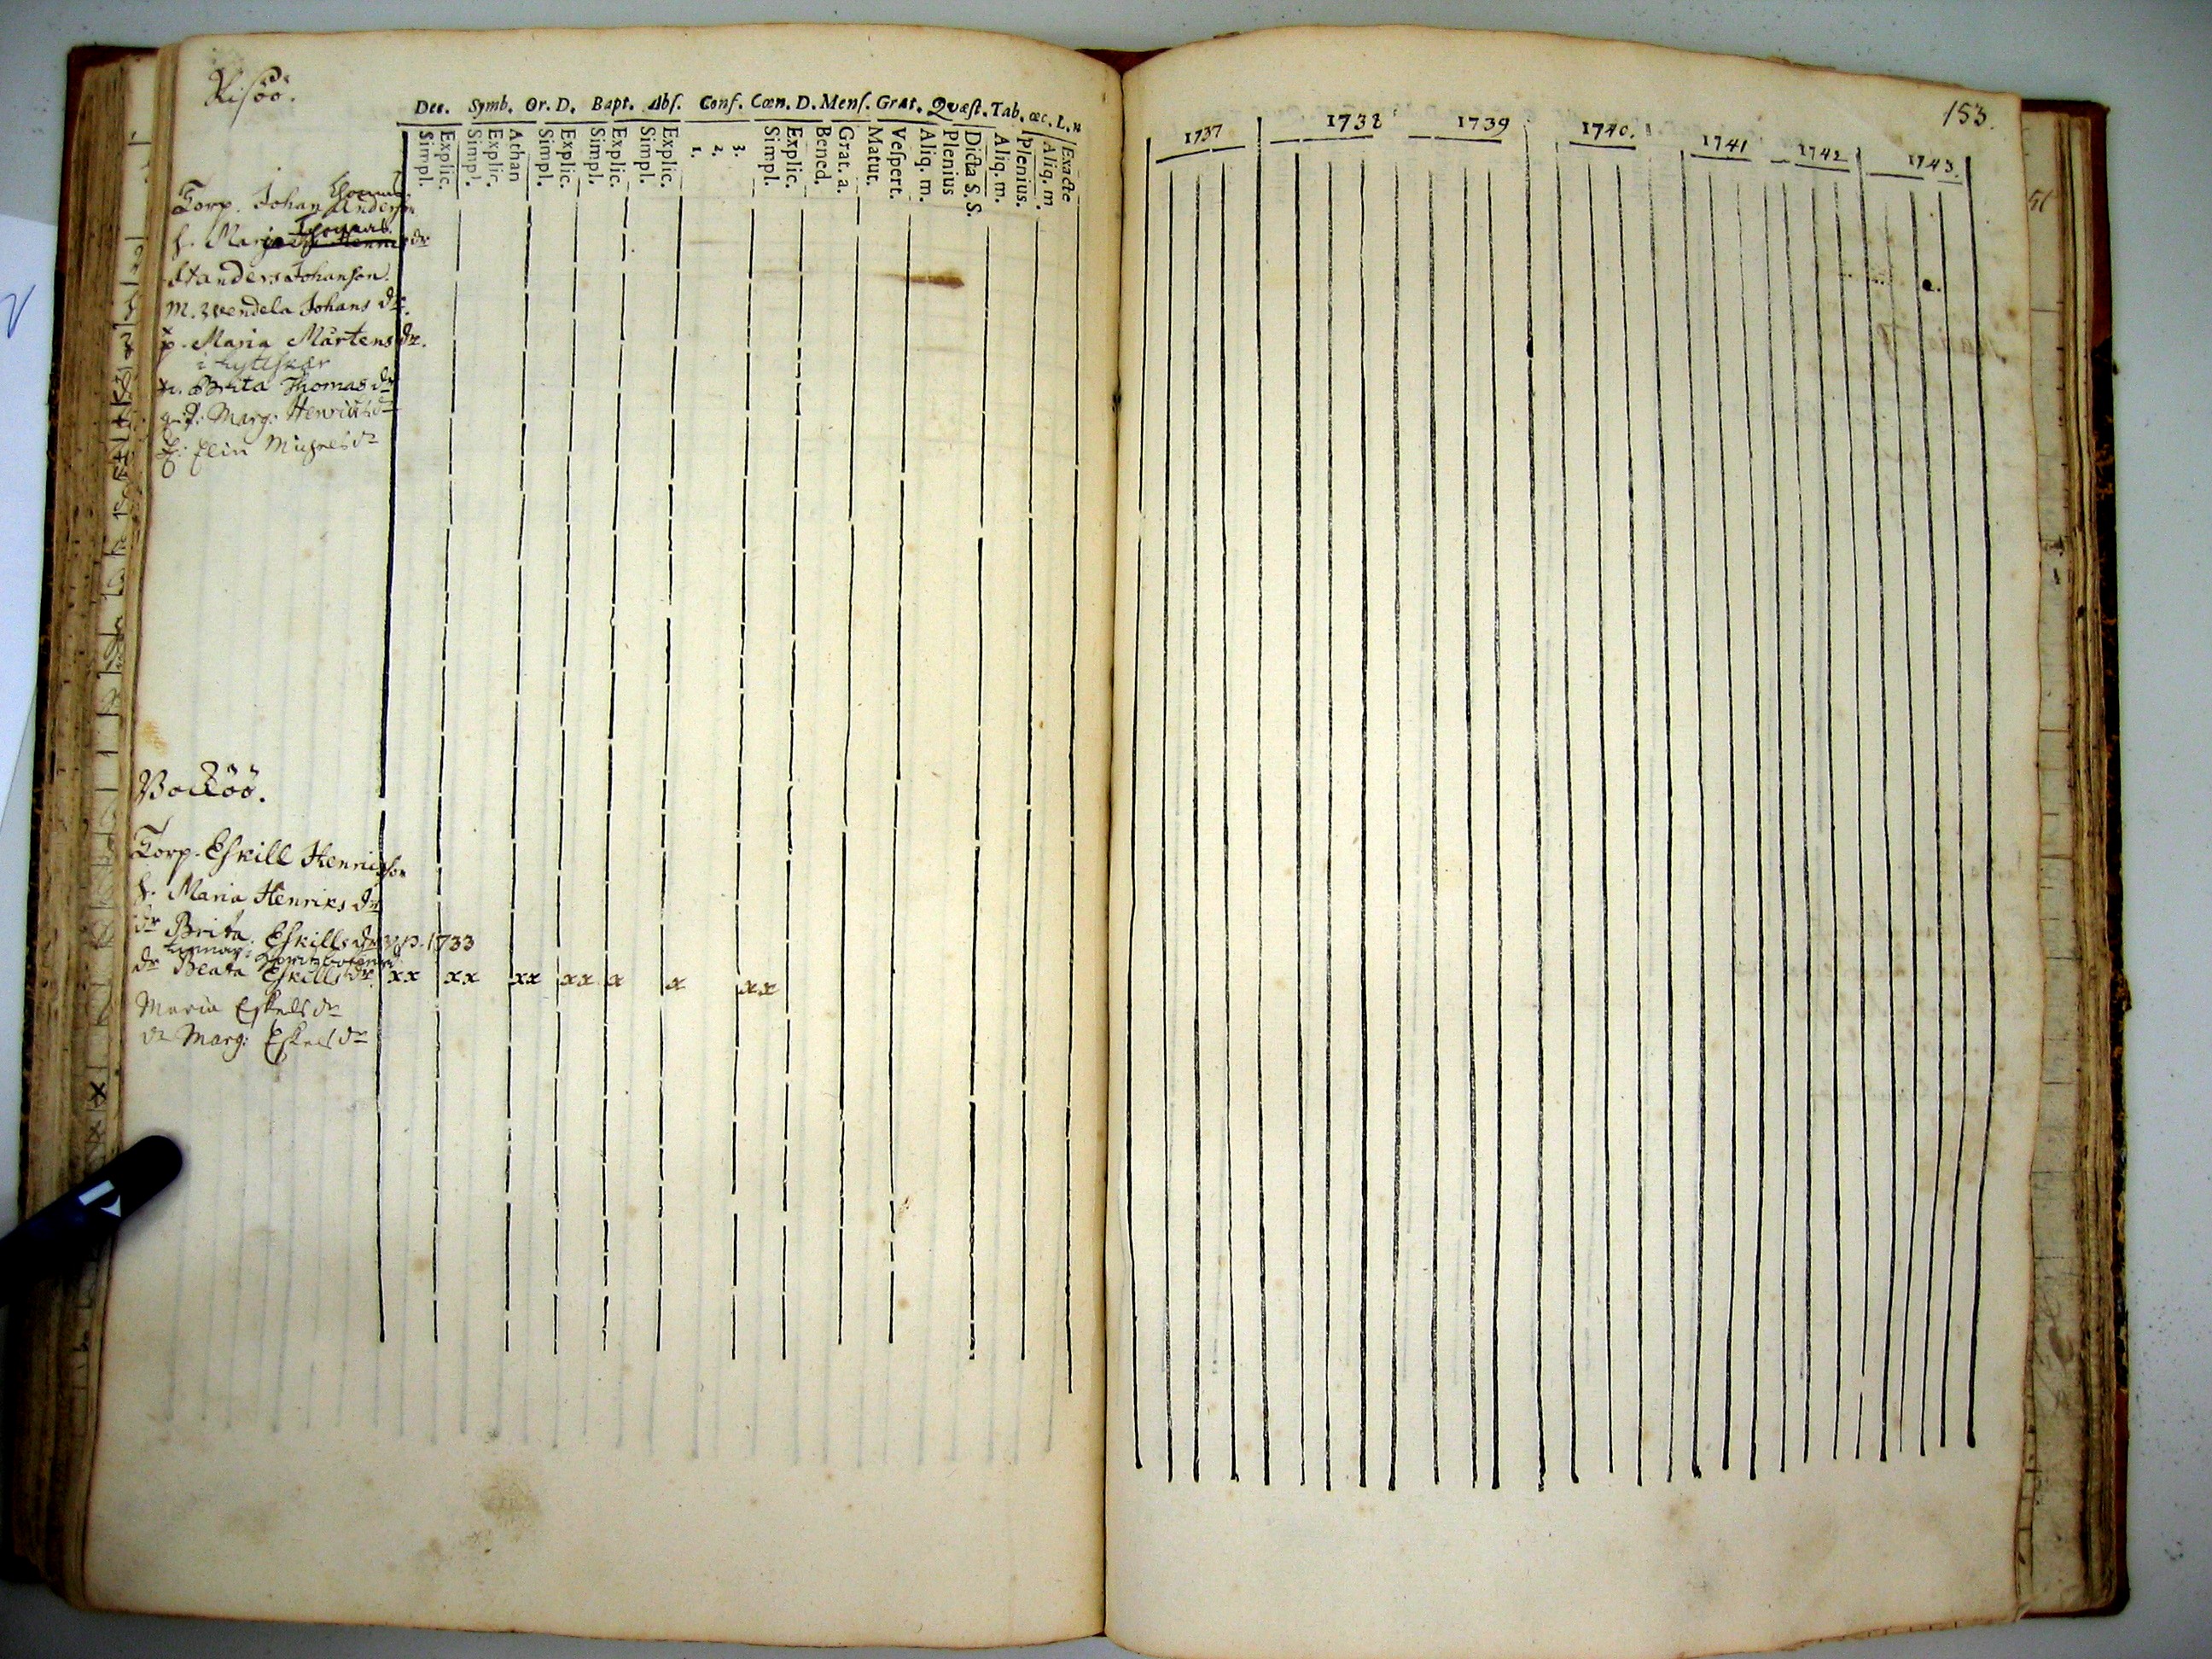 Risöö.
Dec. Symb. Or. D. Bapt. Abſ. Conf. Cœn. D. Menſ. Grat. Quæſt. Tab. œc. L.
Simpl. Explic. Simpl. Explic. Athan Simpl. Explic. Simpl. Explic. Simpl. Explic. 1. 2. 3. Simpl. Explic. Bened. Grat. a. Matut. Veſpert. Aliq. m. Plenius Dicta S. S. Aliq. m. Plenius. Aliq. m Exacte
Thomas
Torp. Johan Anderſon
Thomas
h. Marja dr
Anders Johanſon.
M. Wendela Johans dr.
p. Maria Mårtens dr.
i
Brita Thomas dr
Marg: Henrichs dr
Elin dr
Bocköö.
Torp. Eſkill Henricſſon
h. Maria Henriks dr
dr Brita Eſkills dr 1733
dr Beata Eſkills dr. xx xx xx xx x x xx
Maria Eſkels dr
dr Marg: Eſkels dr
153.
1737 1738 1739 1740. 1741 1742 1743.